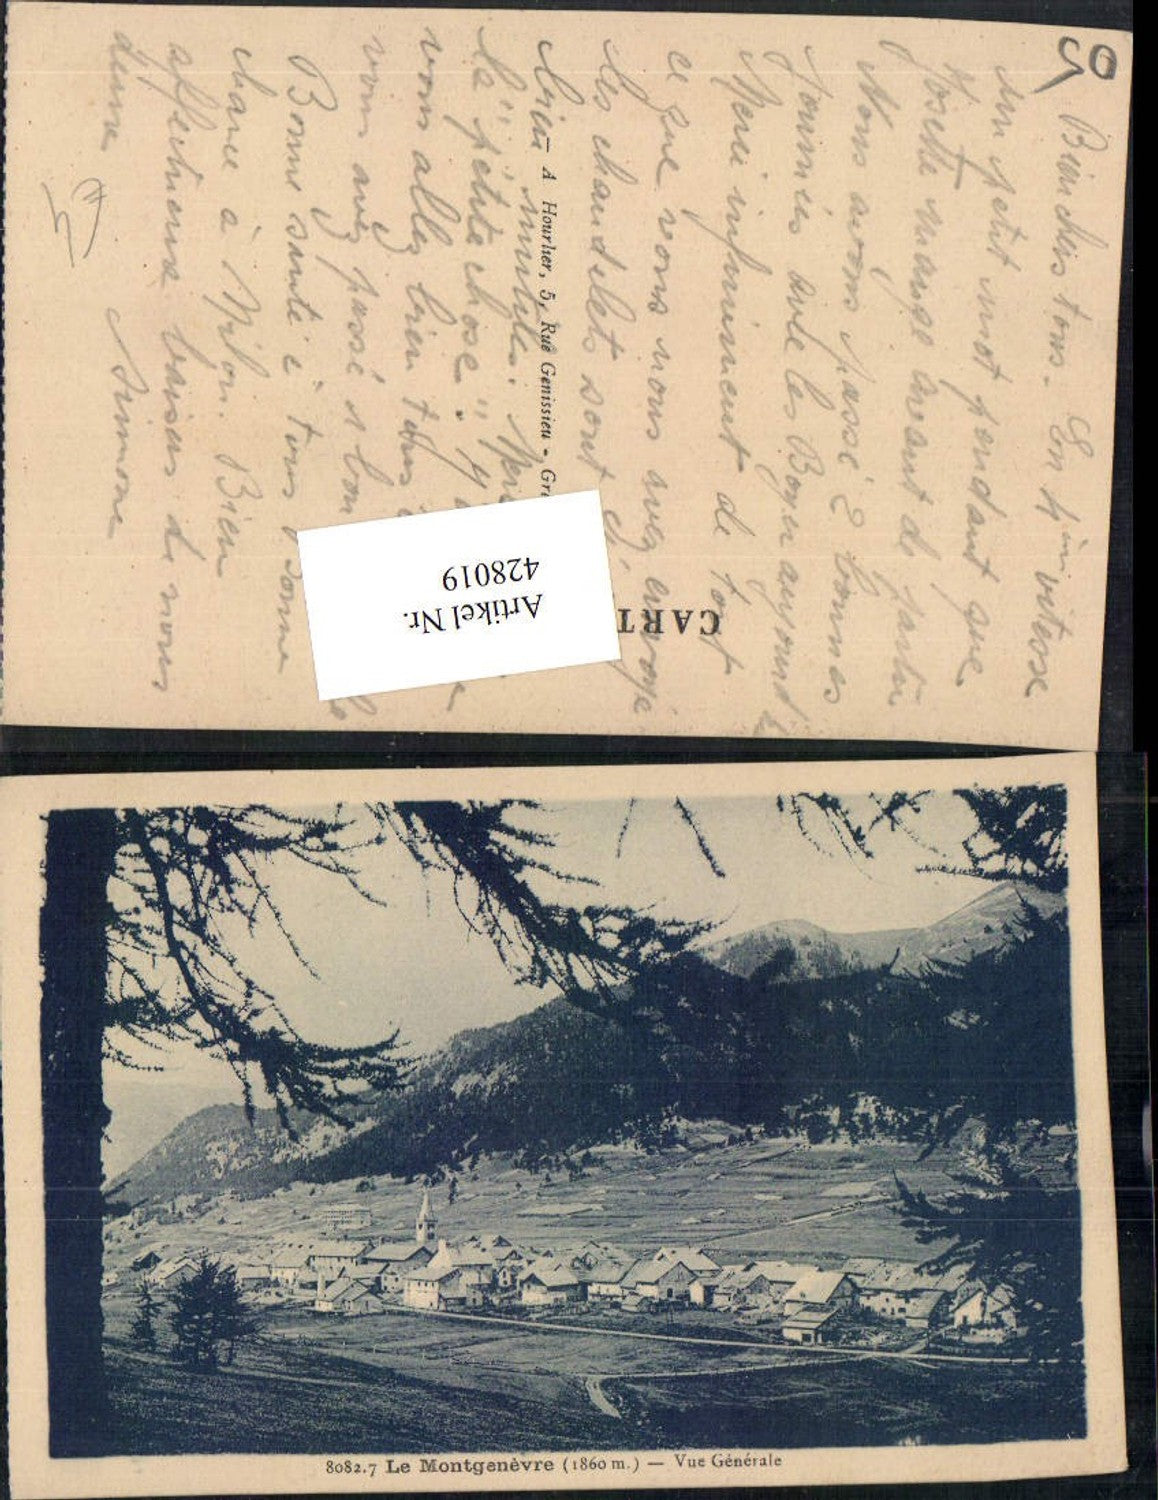 50
Bien chers tous. En 4ème vitesse
un petit mot pendant que
Josette mange avant de partir
Nous avons passé 2 bonnes
Journées avec les
Merci infiniment de tout
ce que vous nous avez envoyé
les sont
la "petite chose".
vous allez bien
vous avez passé
Bonne santé à tous bonne
chance à Bien
affectueux baisers de nous
deux Simone
A Hourlier, 5, Rue Genissieu - Gre
CART
Artikel Nr.
428019
8082.7 Le Montgenèvre (1860 m.) — Vue Générale